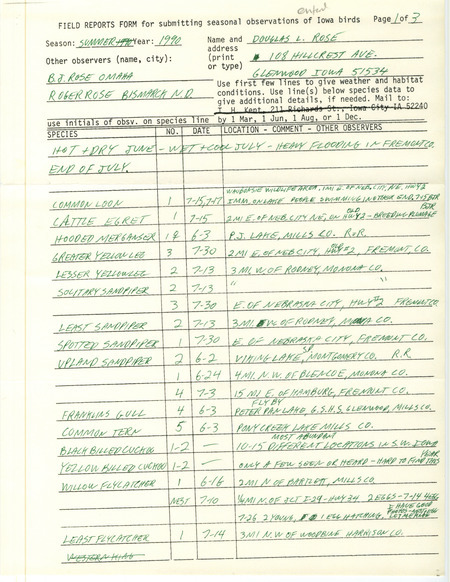 entered
FIELD REPORTS FORM for submitting seasonal observations of Iowa birds Page 1 of 3
Season: SUMMER Year: 1990 Name and DOUGLAS L. ROSE
address
Other observers (name, city): (print 108 HILLCREST AVE.
or type) GLENWOOD IOWA 51534
B.J. ROSE OMAHA
ROGER ROSE BISMARCK N.D.
Use first few lines to give weather and habitat
conditions. Use line(s) below species data to
give additional details, if needed. Mail to:
T. H. Kent, 211 Richards St., Iowa City IA 52240
use initials of obsv. on species line by 1 Mar, 1 Jun, 1 Aug, or 1 Dec.
SPECIES NO. DATE LOCATION - COMMENT - OTHER OBSERVERS
HOT + DRY JUNE - WET + COOL JULY - HEAVY FLOODING IN FREMONT CO.
END OF JULY.
WILDLIFE AREA, 1 MI. E. OF NEB. CITY, NE. HWY 2
COMMON LOON 1 7-15, IMM. ON LAKE PEOPLE SWIMMING IN OTHER END, 7-15 BJR
CATTLE EGRET 1 7-15 2 MI. E. OF NEB. CITY NE, ON OLD HWY 2 - BREEDING PLUMAGE
HOODED MERGANSER 1♀ 6-3 P.J. LAKE, MILLS CO. R.R.
GREATER YELLOWLEG 3 7-30 2 MI E. OF NEB. CITY, HWY #2, FREMONT, CO.
LESSER YELLOWLEG 2 7-13 3 MI. W OF RODNEY, MONONA CO.
SOLITARY SANDPIPER 2 7-13 " "
3 7-30 E. OF NEBRASKA CITY, HWY #2 FREMONT CO.
LEAST SANDPIPER 2 7-13 3 MI W OF RODNEY, MONONA CO.
SPOTTED SANDPIPER 1 7-30 E. OF NEBRASKA CITY, FREMONT CO.
UPLAND SANDPIPER 2 6-2 VIKING LAKE SP, MONTGOMERY CO. R.R.
1 6-24 4 MI. N.W. OF BLENCOE, MONONA CO.
4 7-3 15 MI E. OF HAMBURG, FREMONT CO.
FLY BY
FRANKLINS GULL 4 6-3 PETER PAN LAKE, G.S.H.S, GLENWOOD, MILLS CO.
COMMON TERN 5 6-3 PONY CREEK LAKE MILLS CO.
MOST ABUNDANT
BLACK BILLED CUCKOO 1-2 — 10-15 DIFFERENT LOCATIONS IN S.W. IOWA
YELLOW BILLED CUCKOO 1-2 — ONLY A FEW SEEN OR HEARD - HARD TO FIND THIS YEAR
WILLOW FLYCATCHER 1 6-16 2 MI N OF BARTLETT, MILLS CO.
NEST 7-10 ½ MI N OF JCT I-29 - HWY 34 2 EGGS - 7-14 4 EGG
7-26 2 YOUNG, 1 EGG HATCHING. I HAVE GOOD
LEAST FLYCATCHER 1 7-14 3 MI N.W OF WOODBINE HARRISON CO.
WESTERN KING